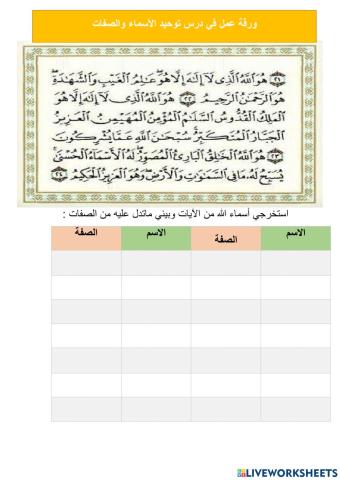 ورقة عمل في درس توحيد الأسماء والصفات
﴿٢١﴾ هُوَ اللَّهُ الَّذِي لَا إِلَٰهَ إِلَّا هُوَ عَالِمُ الْغَيْبِ وَالشَّهَادَةِ
هُوَ الرَّحْمَٰنُ الرَّحِيمُ ﴿٢٢﴾ هُوَ اللَّهُ الَّذِي لَا إِلَٰهَ إِلَّا هُوَ
الْمَلِكُ الْقُدُّوسُ السَّلَامُ الْمُؤْمِنُ الْمُهَيْمِنُ الْعَزِيزُ
الْجَبَّارُ الْمُتَكَبِّرُ سُبْحَانَ اللَّهِ عَمَّا يُشْرِكُونَ
﴿٢٣﴾ هُوَ اللَّهُ الْخَالِقُ الْبَارِئُ الْمُصَوِّرُ لَهُ الْأَسْمَاءُ الْحُسْنَىٰ
يُسَبِّحُ لَهُ مَا فِي السَّمَاوَاتِ وَالْأَرْضِ وَهُوَ الْعَزِيزُ الْحَكِيمُ ﴿٢٤﴾
استخرجي أسماء الله من الآيات وبيني ماتدل عليه من الصفات :
الاسم الصفة الاسم الصفة
LIVEWORKSHEETS